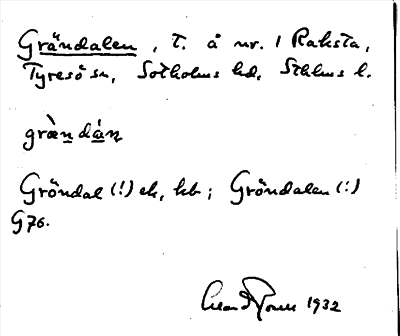 Grändalen, t. å nr. 1 Raksta,
Tyresö sn, Sotholms hd, Sthlms l.
græ̀ndáɳ
Gröndal (!) ek, kb; Gröndalen (!)
G76.
1932